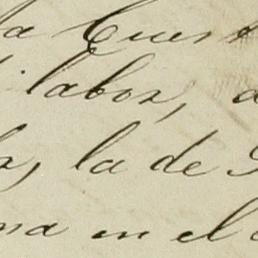 la Cuest
labor, a
la de
ma en el